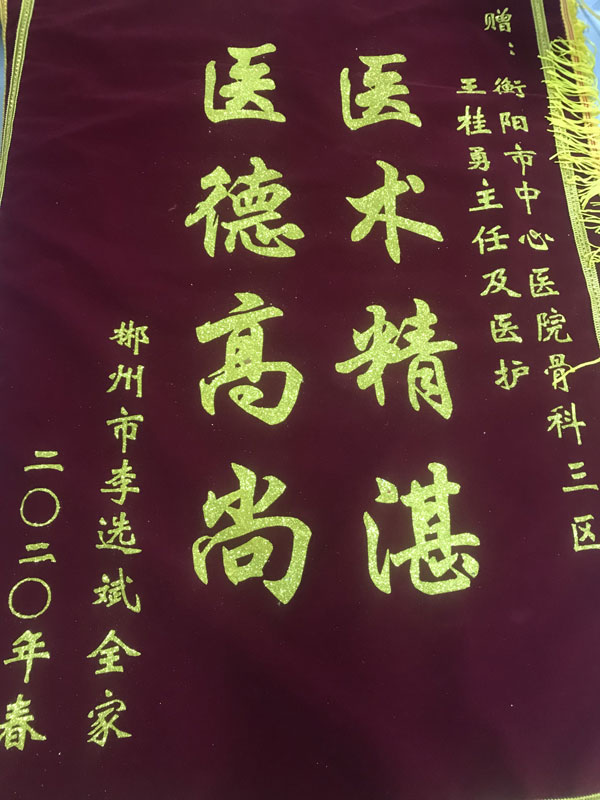 赠：衡阳市中心医院骨科三区
王桂勇主任及医护
医术精湛
医德高尚
郴州市李选斌全家
二〇二〇年春